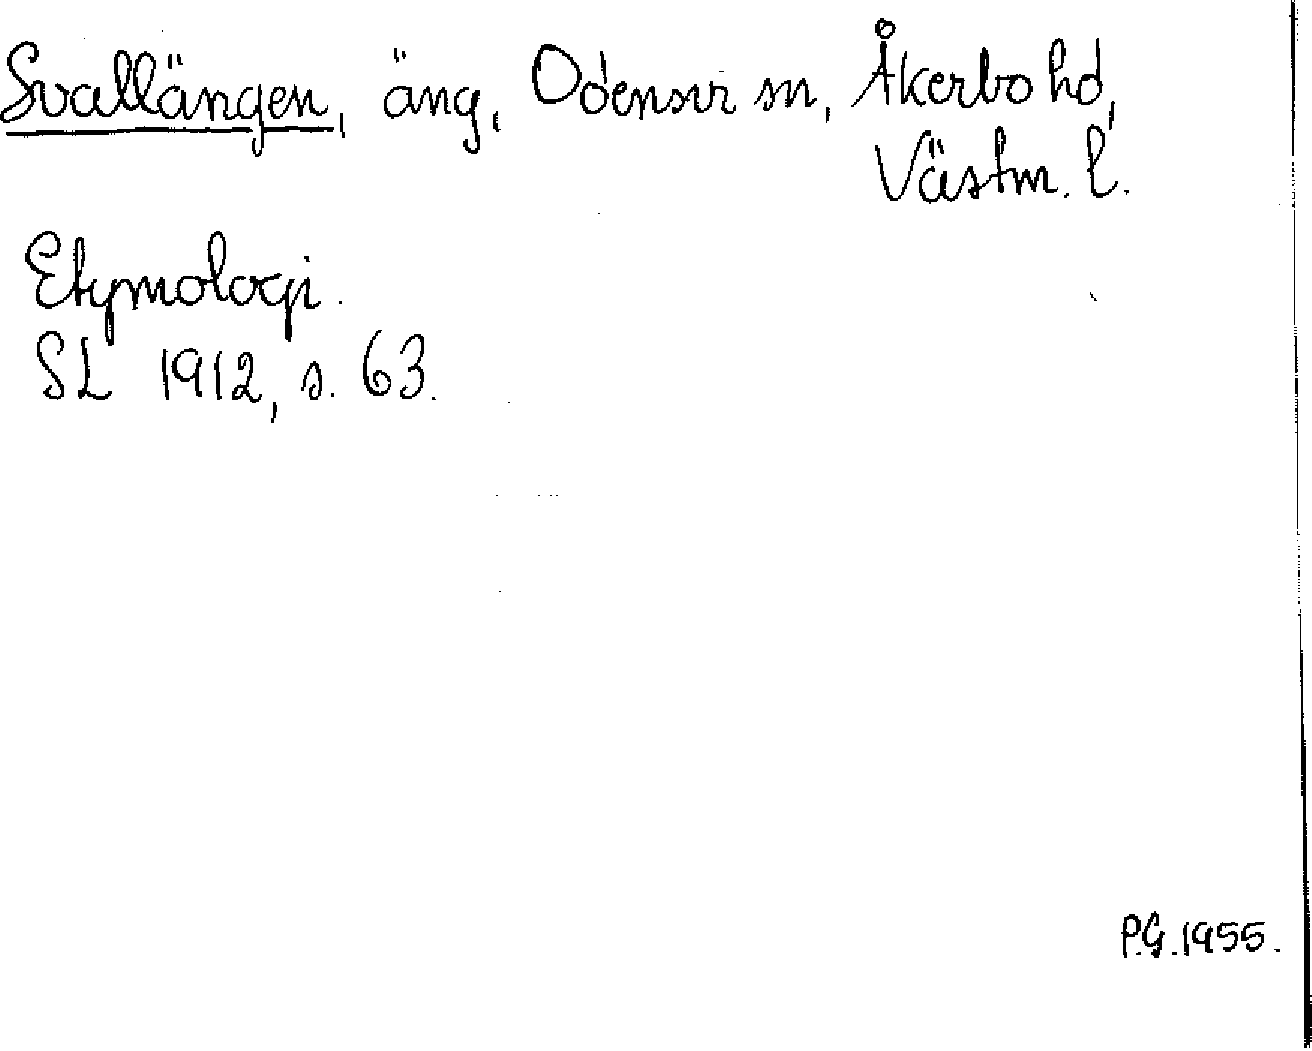 Svallängen, äng, Odensvi sn, Åkerbo hd,
Västm. l.
Etymologi.
SL 1912, s. 63.
P.G. 1955.